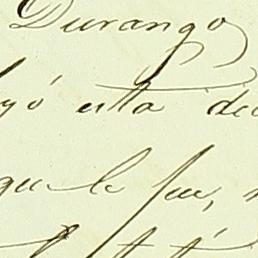 Durango
yó esta de
que le fue,